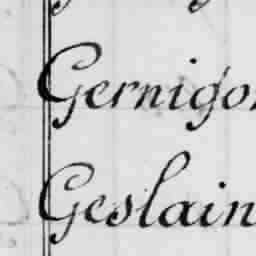 Gernigon
Geslain